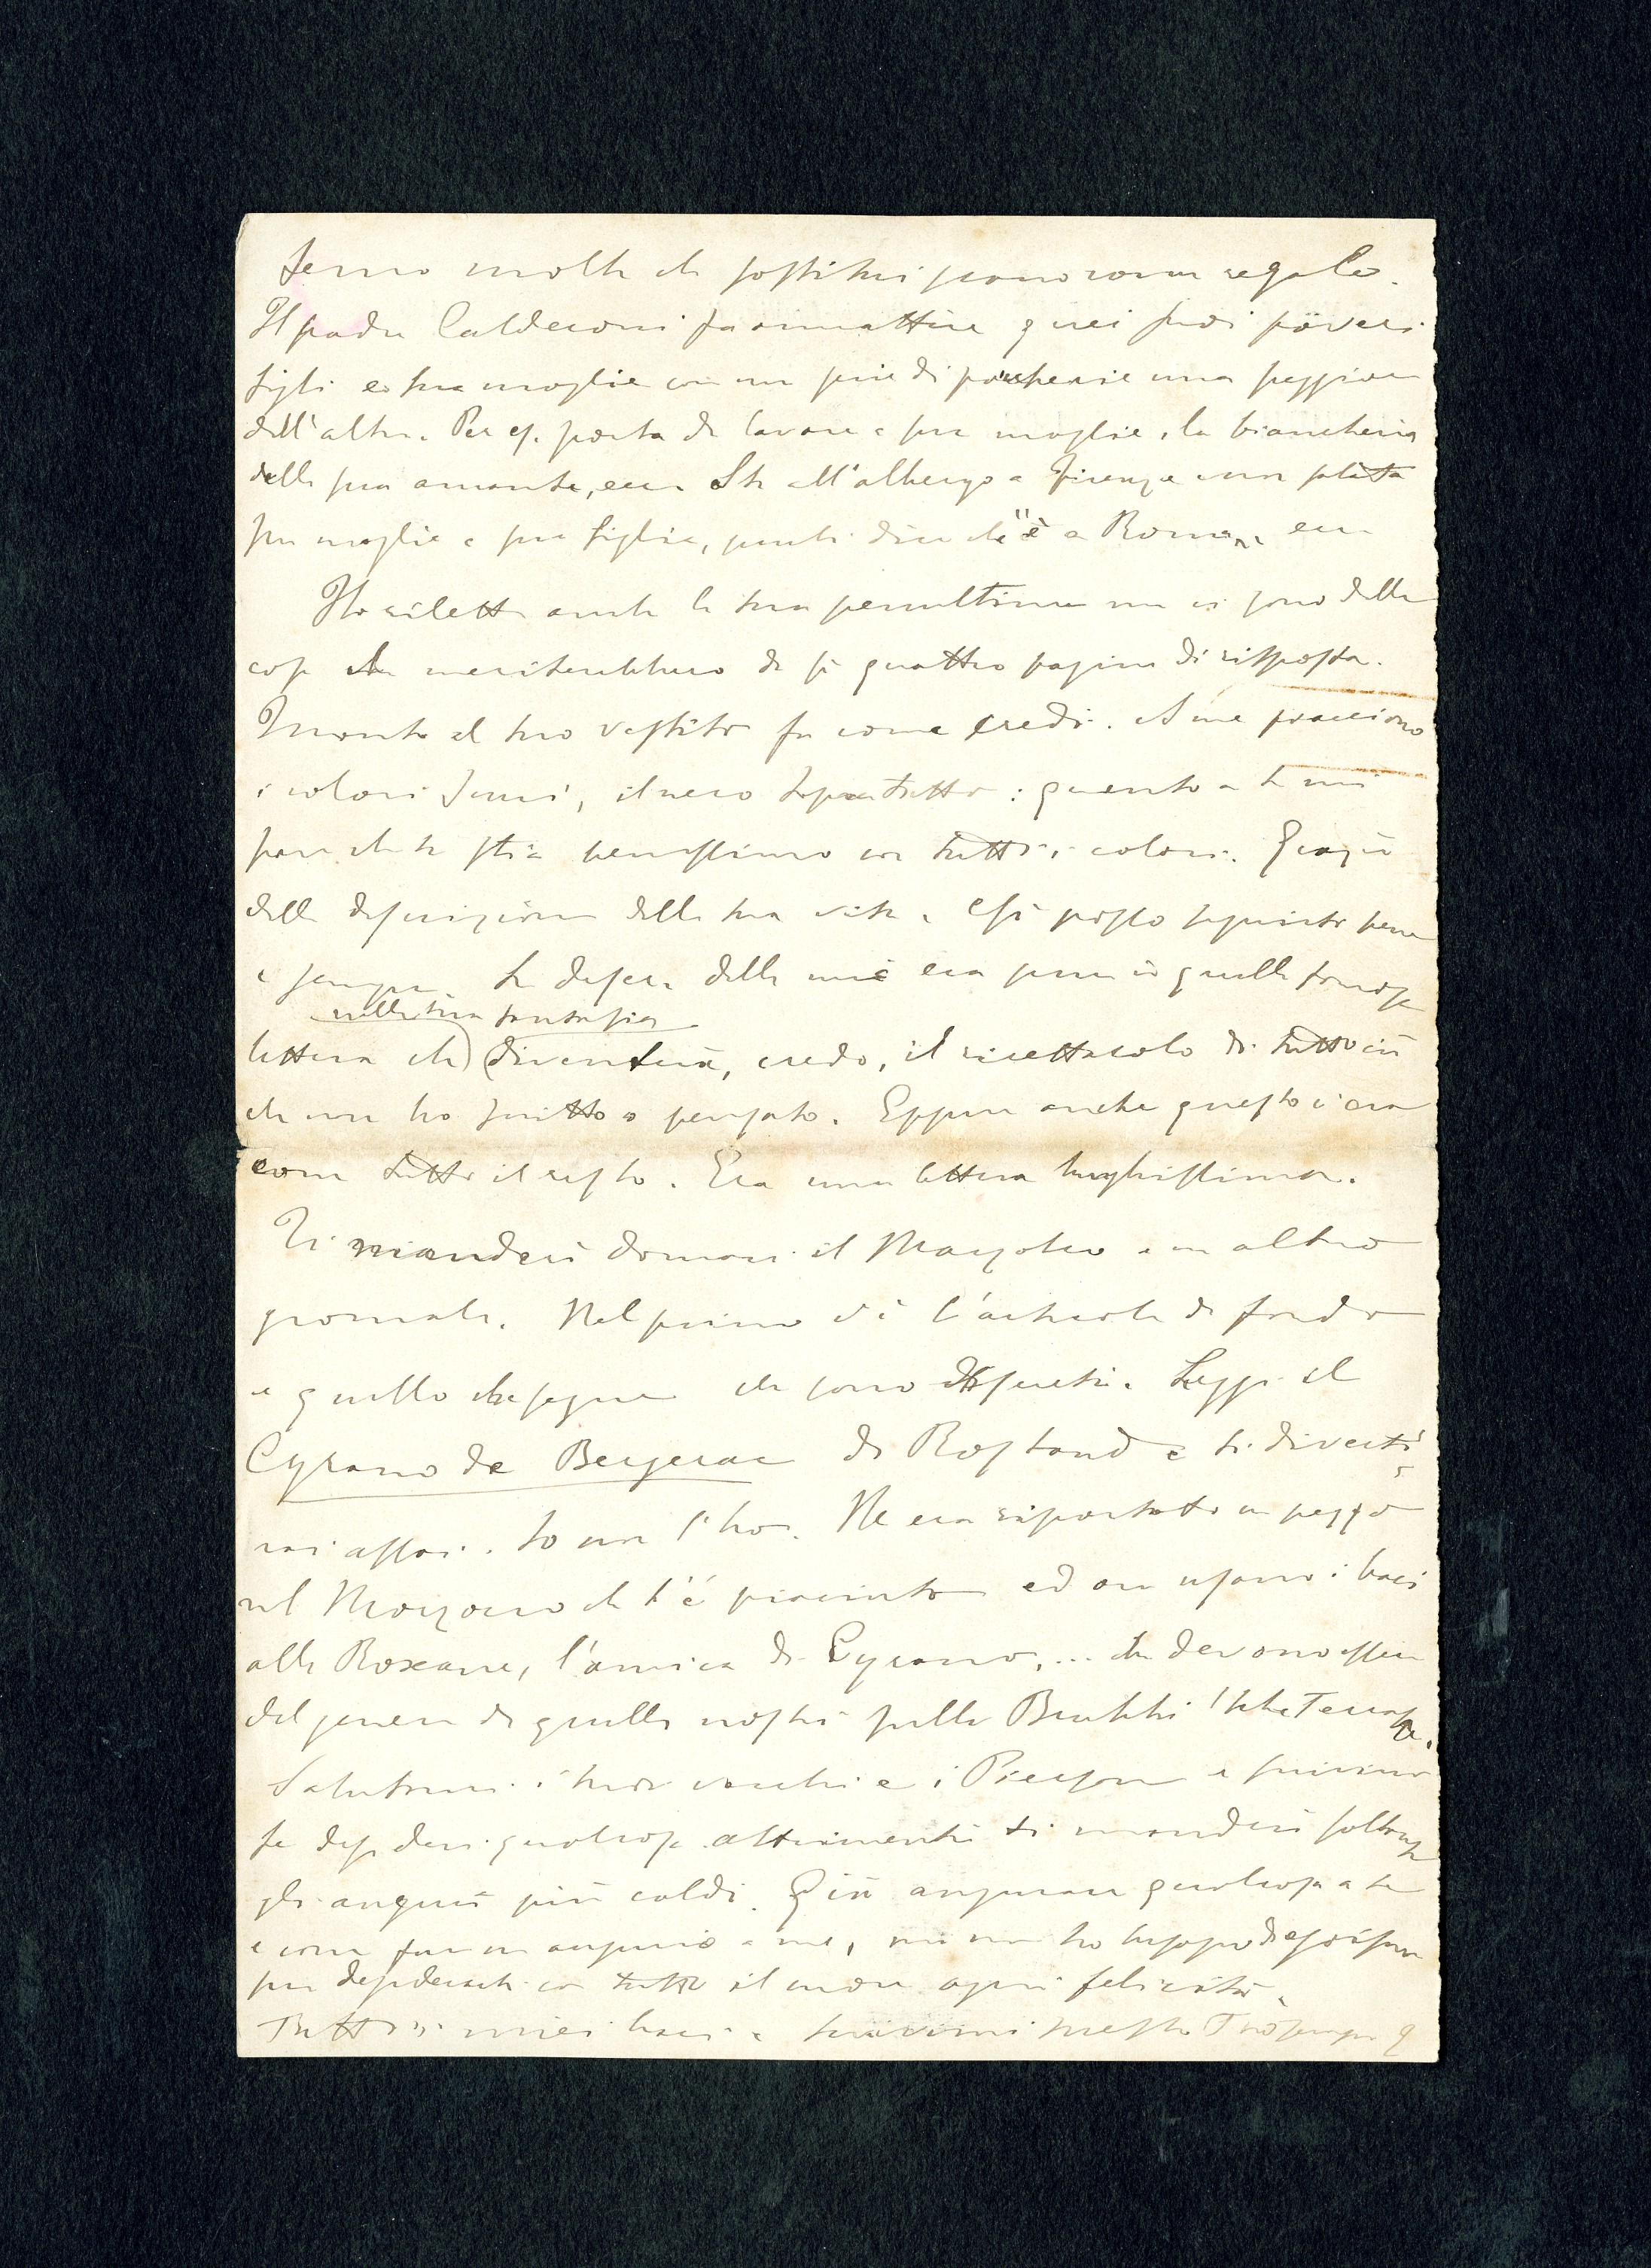 Temo molto che
Il padre Calderoni fa ammattire quei suoi poveri
figli e sua moglie con una serie di porcherie una peggiore
dell'altra. Per es. porta da lavare a sua moglie, la biancheria
della sua amante, ecc. Sta all'albergo a Firenze e non saluta
sua moglie e sua figlia, perché dice che "è a Roma", ecc.
Ho riletto anche la tua penultima ma ci sono delle
cose che meriterebbero da sé quattro pagine di risposta.
Inquanto al tuo vestito fa come credi. A me piacciono
i colori scuri, il nero sopratutto: quanto a te mi
pare che ti stia benissimo con tutti i colori. Grazie
della descrizione della tua vita. Così posso seguirti bene
e sempre. La descr. della mia era pure in quella famosa
nella tua fantasia
lettera che diventerà, credo, il ricettacolo di tutto ciò
che non ho scritto o pensato. Eppure anche questo c'era
come tutto il resto. Era una lettera lunghissima.
Ti manderò domani il Marzocco e un altro
giornale. Nel primo c'è l'articolo di fondo
e quello che segue che sono discreti. Leggi il
Cyrano de Bergerac di Rostand e ti diverti-
rai assai. Io non l'ho. Ne era riportato un pezzo
nel Marzocco che t'è piaciuto ed ove usano i baci
alla Roxane, l'amica di Cyrano,... che devono essere
del genere di quelli nostri sulla Brühl'sche Terrasse.
Salutami i tuoi vecchi e i Pierson e scrivimi
se desideri qualcosa altrimenti ti manderò soltanto
gli auguri più caldi. Già augurare qualcosa a te
è come fare un augurio a me, ma non ho bisogno d'essere
per desiderarti con tutto il cuore ogni felicità.
Tutti i miei baci e scrivimi presto Tuo sempre G